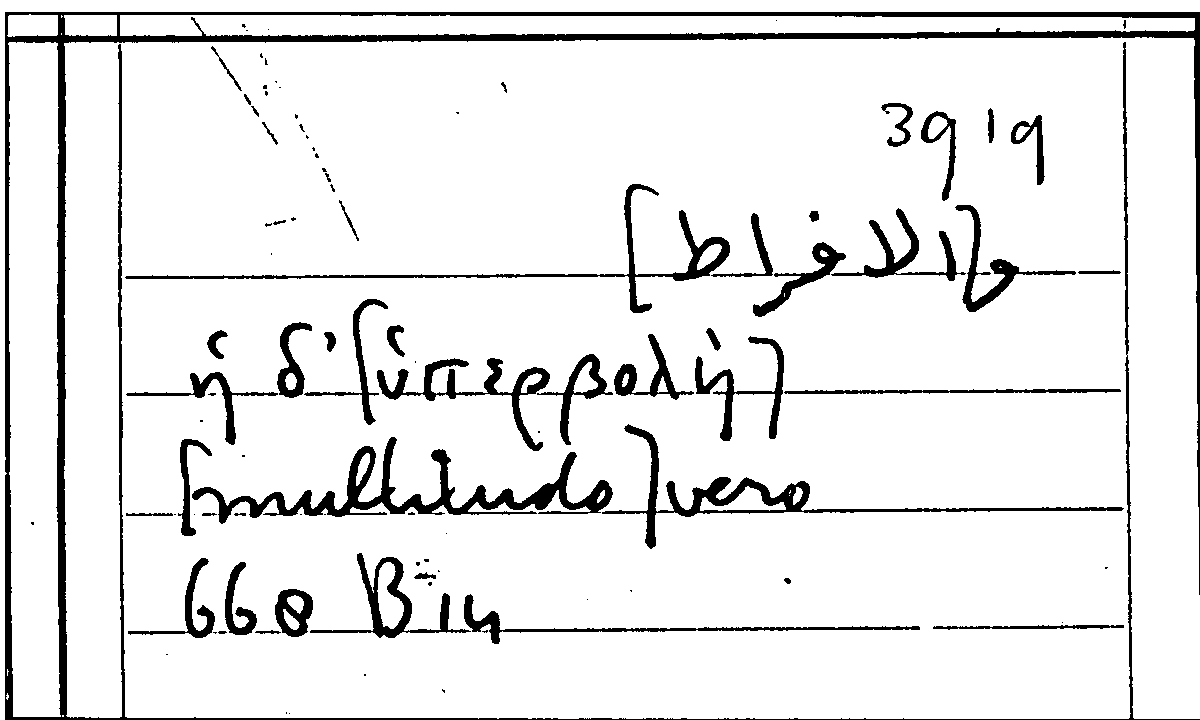 39 19
و[الافراط]
ἡ δ' [ὑπερβολὴ]
[multitudo] vero
668 B 14